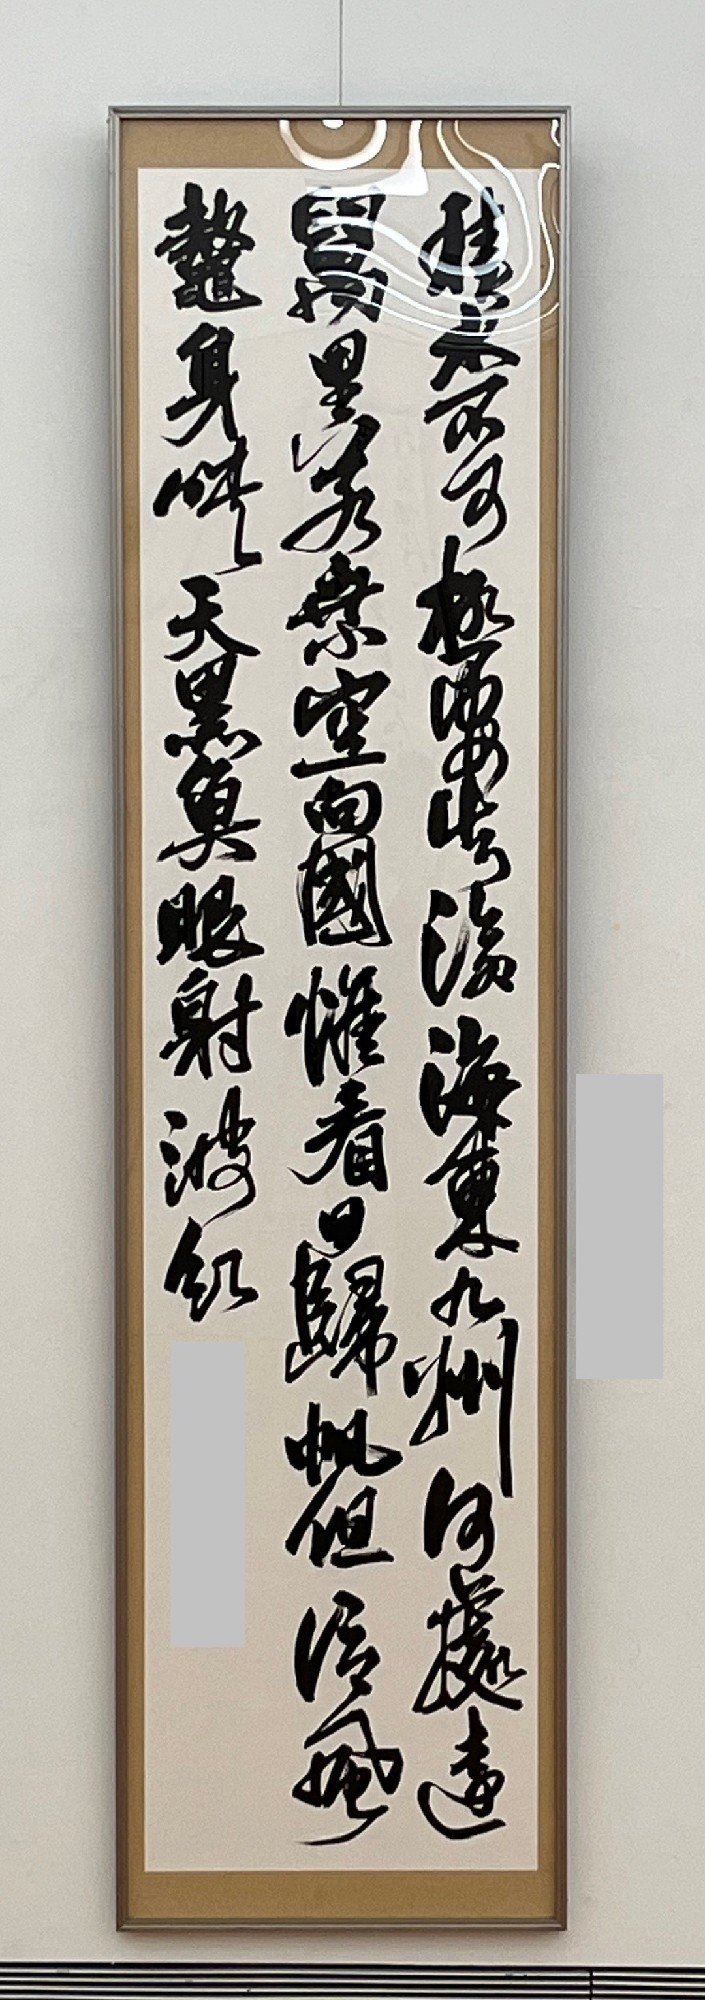 積水不可極安知滄海東九州何處遠
萬里若乘空向國惟看日歸帆但信風
鼇身映天黑魚眼射波紅